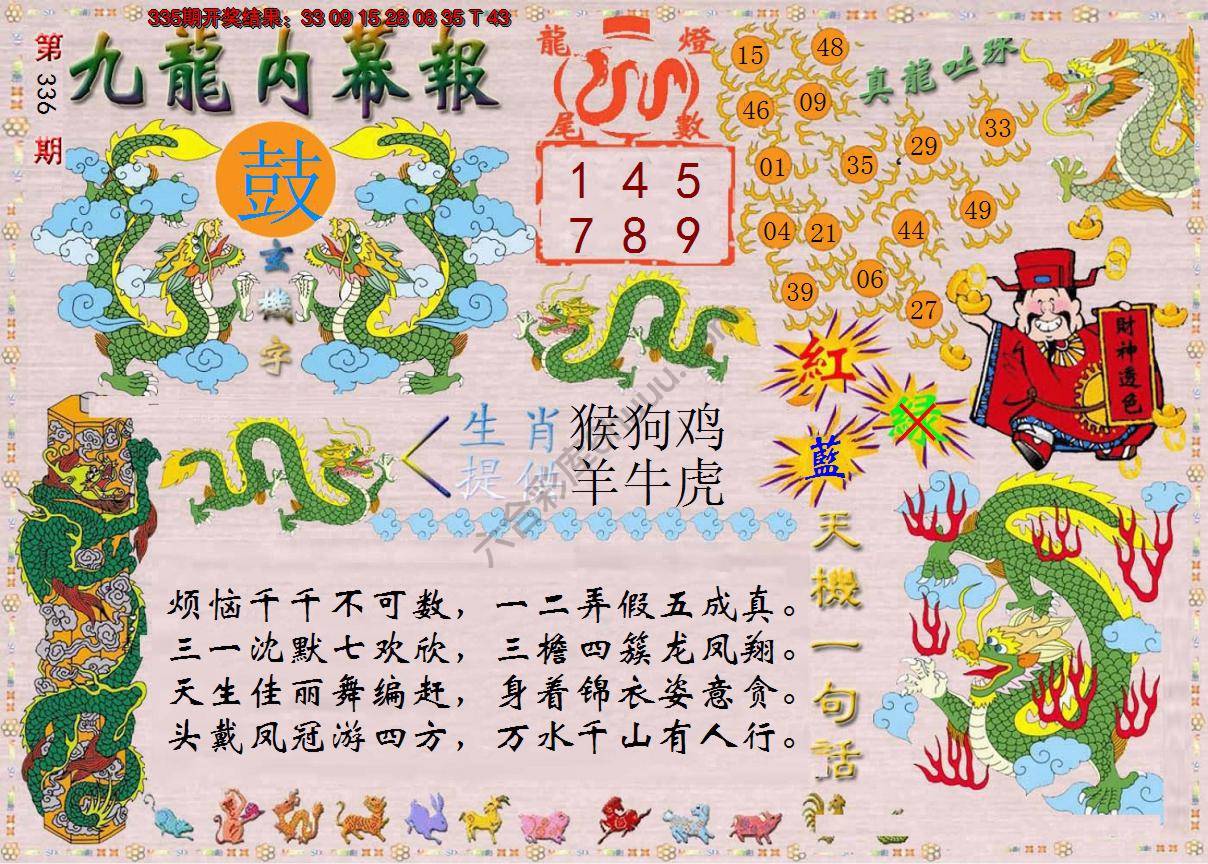 335期开奖结果：33 09 15 28 08 35 T 43
第336期
九龍内幕報
鼓
玄機字
龍燈
尾數
1 4 5
7 8 9
真龍吐珠
15
48
46
09
29
33
01
35
49
04
21
44
39
06
27
財神透色
紅
綠
藍
生肖
提供
猴狗鸡
羊牛虎
天機一句話
烦恼千千不可数，一二弄假五成真。
三一沈默七欢欣，三檐四簇龙凤翔。
天生佳丽舞编赶，身着锦衣姿意贪。
头戴凤冠游四方，万水千山有人行。